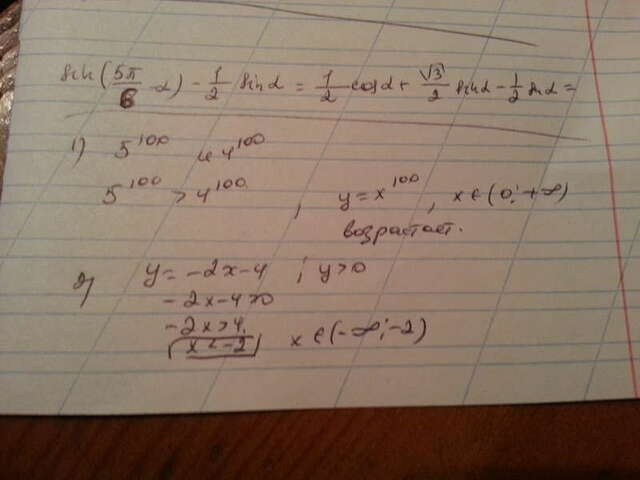 sin(5π/6 - α) - 1/2 sin α = 1/2 cos α + √3/2 sin α - 1/2 sin α =
1) 5^100 и 4^100
5^100 > 4^100, y = x^100, x ∈ (0; +∞)
возрастает.
2) y = -2x-4 ; y>0
-2x-4>0
-2x>4
x < -2 x ∈ (-∞; -2)